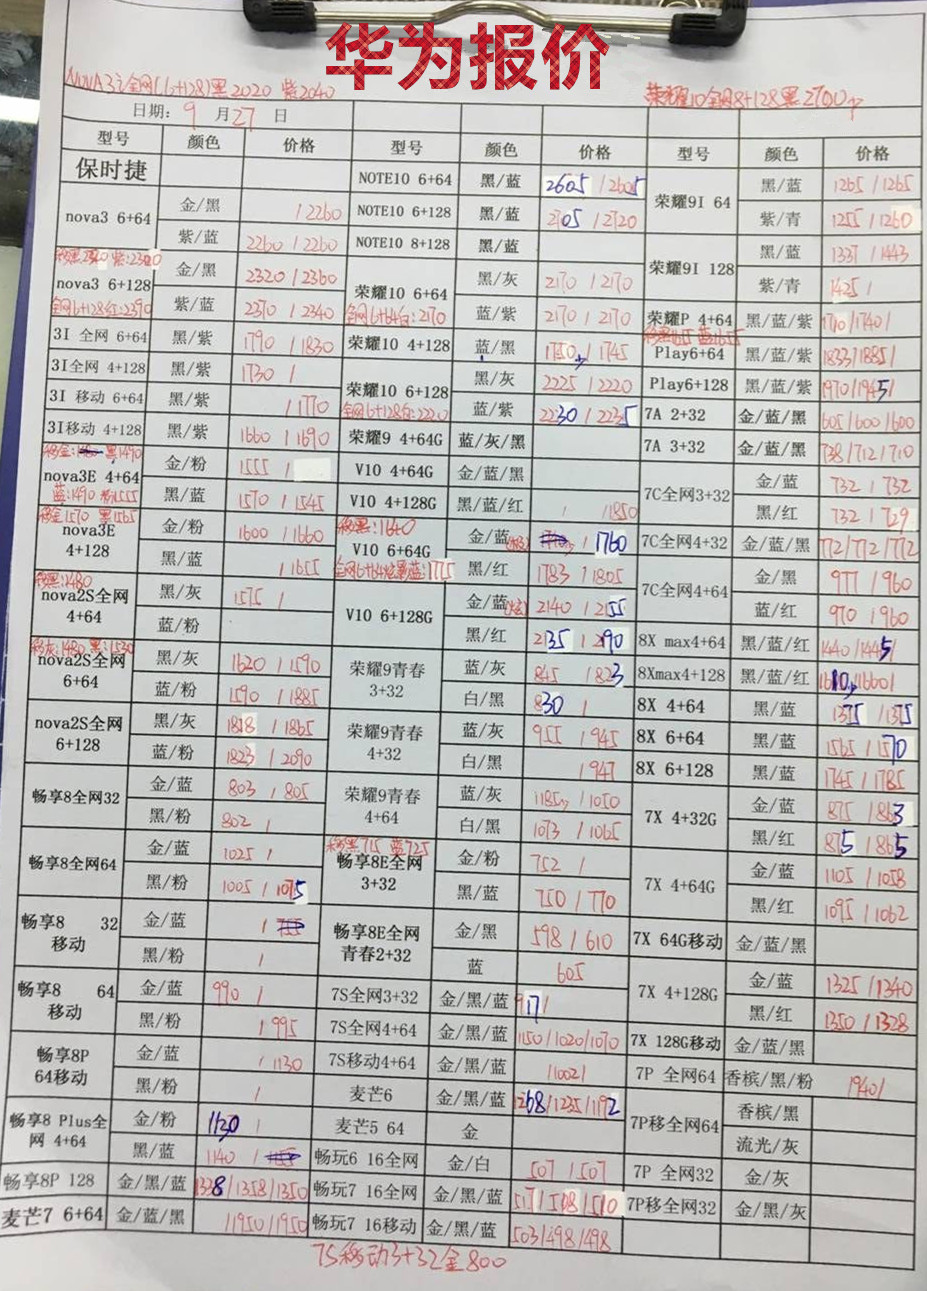 华为报价
NOVA3i全网(6+128)黑2020 紫2040
荣耀10全网8+128黑2700
日期: 9 月 27 日
型号 颜色 价格 型号 颜色 价格 型号 颜色 价格
保时捷
nova3 6+64 金/黑 /2260
紫/蓝 2260/2260
移黑2320 紫:2320
nova3 6+128 金/黑 2320/2360
全网6+128红:2390 紫/蓝 2370/2340
3I 全网 6+64 黑/紫 1790/1830
3I全网 4+128 黑/紫 1730/
3I 移动 6+64 黑/紫 /1770
3I移动 4+128 黑/紫 1660/1690
黑1490
nova3E 4+64 金/粉 1555/
蓝:1490 粉1555 黑/蓝 1570/1545
移金1570 黑1565
nova3E 4+128 金/粉 1600/1660
黑/蓝 /1655
移黑:1480
nova2S全网 4+64 黑/灰 1575/
蓝/粉
移灰:1480 黑:1530
nova2S全网 6+64 黑/灰 1620/1590
蓝/粉 1590/1885
nova2S全网 6+128 黑/灰 1818/1865
蓝/粉 1823/2090
畅享8全网32 金/蓝 803/805
黑/粉 802/
畅享8全网64 金/蓝 1025/
黑/粉 1005/1075
畅享8 32 移动 金/蓝 /
黑/粉 /
畅享8 64 移动 金/蓝 990/
黑/粉 /995
畅享8P 64移动 金/蓝 /1130
黑/粉 /
畅享8 Plus全网 4+64 金/粉 1130/
黑/蓝 1140/
畅享8P 128 金/黑/蓝 1338/1358/1350
麦芒7 6+64 金/蓝/黑 /1950/1950
NOTE10 6+64 黑/蓝 2605/2605
NOTE10 6+128 黑/蓝 2705/2720
NOTE10 8+128 黑/蓝
荣耀10 6+64 黑/灰 2170/2170
全网6+64白:2170 蓝/紫 2170/2170
荣耀10 4+128 蓝/黑 1750/1745
荣耀10 6+128 黑/灰 2225/2220
全网6+128红:2220 蓝/紫 2230/2235
荣耀9 4+64G 蓝/灰/黑
V10 4+64G 金/蓝/黑
V10 4+128G 黑/蓝/红 / /1850
移黑:1640
V10 6+64G 金/蓝 /1760
黑/红 1783/1805
V10 6+128G 金/蓝 2140/2155
黑/红 2135/2190
荣耀9青春 3+32 蓝/灰 845/823
白/黑 830/
荣耀9青春 4+32 蓝/灰 955/945
白/黑 /947
荣耀9青春 4+64 蓝/灰 1185/1050
白/黑 1073/1065
移黑715 蓝725
畅享8E全网 3+32 金/粉 752/
黑/蓝 750/770
畅享8E全网 青春2+32 金/黑 598/610
蓝 605
7S全网3+32 金/黑/蓝 917/
7S全网4+64 金/黑/蓝 1150/1020/1070
7S移动4+64 金/黑/蓝 /1002/
麦芒6 金/黑/蓝 1268/1235/1192
麦芒5 64 金
畅玩6 16全网 金/白 507/507
畅玩7 16全网 金/黑/蓝 517/508/510
畅玩7 16移动 金/黑/蓝 503/498/498
荣耀9I 64 黑/蓝 1265/1265
紫/青 1255/1260
荣耀9I 128 黑/蓝 1337/1443
紫/青 1425/
荣耀P 4+64 黑/蓝/紫 1710/1740/
Play6+64 黑/蓝/紫 1833/1885/
Play6+128 黑/蓝/紫 1970/1945/
7A 2+32 金/蓝/黑 605/600/600
7A 3+32 金/蓝/黑 738/712/710
7C全网3+32 金/蓝 732/732
黑/红 732/729
7C全网4+32 金/蓝/黑 772/772/772
7C全网4+64 金/黑 977/960
蓝/红 970/960
8X max4+64 黑/蓝/红 1440/1445/
8Xmax4+128 黑/蓝/红 1610/1600/
8X 4+64 黑/蓝 1375/1375
8X 6+64 黑/蓝 1565/1570
8X 6+128 黑/蓝 1745/1785
7X 4+32G 金/蓝 875/863
黑/红 875/865
7X 4+64G 金/蓝 1105/1058
黑/红 1095/1062
7X 64G移动 金/蓝/黑
7X 4+128G 金/蓝 1325/1340
黑/红 1350/1328
7X 128G移动 金/蓝/黑
7P 全网64 香槟/黑/粉 1940/
7P移全网64 香槟/黑
流光/灰
7P 全网32 金/灰
7P移全网32 金/黑/灰
7S移动3+32金800